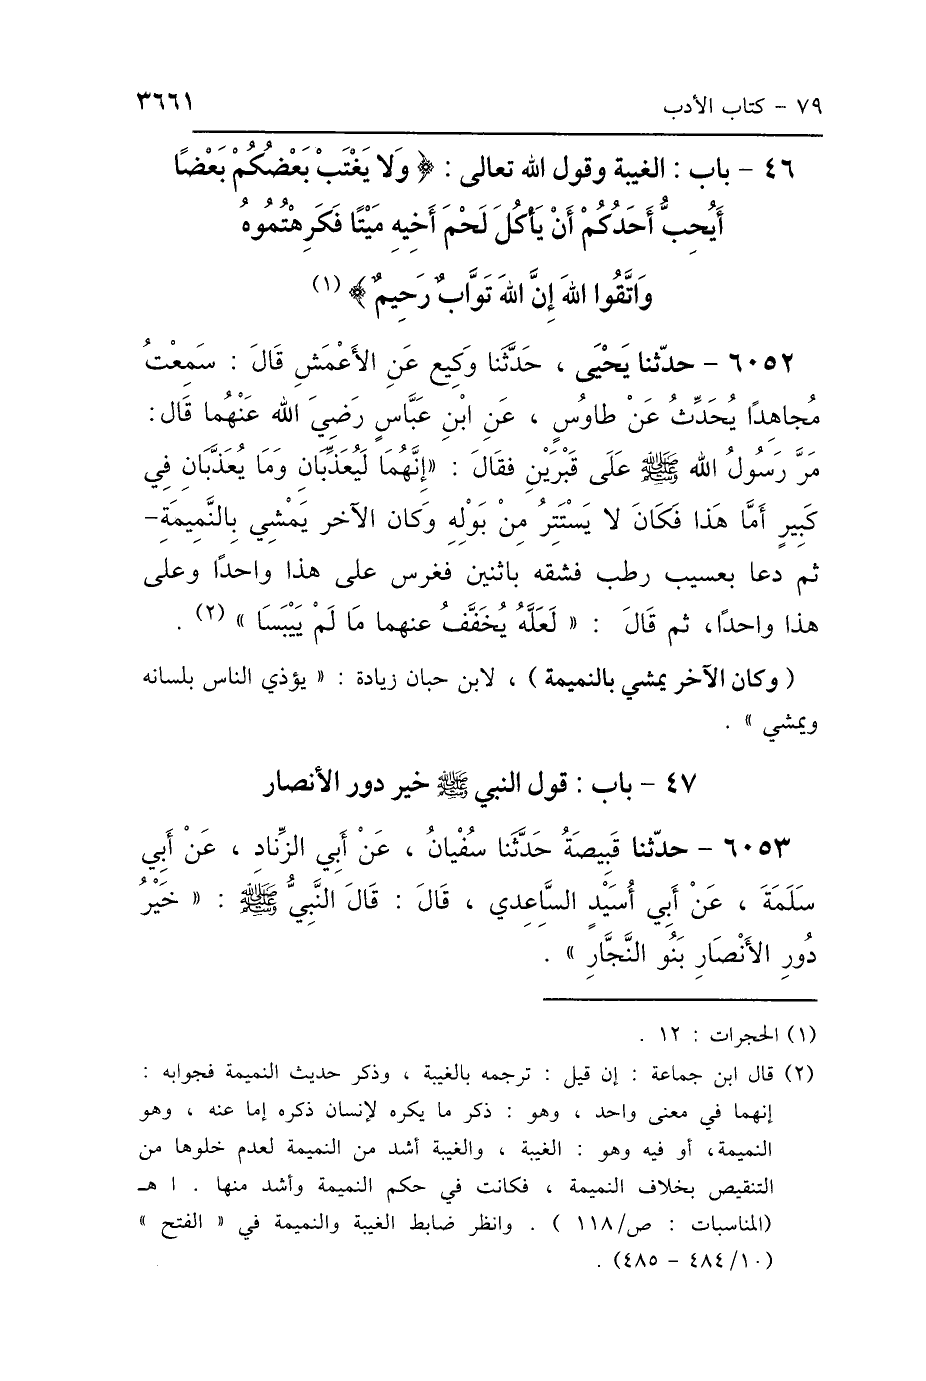 ٧٩ - كتاب الأدب ٣٦٦١
٤٦ - باب : الغيبة وقول الله تعالى : ﴿ وَلَا يَغْتَبْ بَعْضُكُمْ بَعْضًا
أَيُحِبُّ أَحَدُكُمْ أَنْ يَأْكُلَ لَحْمَ أَخِيهِ مَيْتًا فَكَرِهْتُمُوهُ
وَاتَّقُوا اللهَ إِنَّ اللهَ تَوَّابٌ رَحِيمٌ ﴾ (١)
٦٠٥٢ - حدّثنا يَحْيَى ، حَدَّثَنا وَكِيع عَنِ الأَعْمَشِ قَالَ : سَمِعْتُ
مُجاهِدًا يُحَدِّثُ عَنْ طاوُسٍ ، عَنِ ابْنِ عَبَّاسٍ رَضِيَ الله عَنْهُما قَال :
مَرَّ رَسُولُ الله ﷺ عَلَى قَبْرَيْنِ فقَالَ : «إِنَّهُمَا لَيُعَذَّبَانِ وَمَا يُعَذَّبَانِ فِي
كَبِيرٍ أَمَّا هَذَا فَكَانَ لا يَسْتَتِرُ مِنْ بَوْلِهِ وَكَان الآخر يَمْشِي بِالنَّمِيمَةِ-
ثم دعا بعسيب رطب فشقه باثنين فغرس على هذا واحدًا وعلى
هذا واحدًا، ثم قَالَ : « لَعَلَّهُ يُخَفَّفُ عنهما مَا لَمْ يَيْبَسَا » (٢) .
( وكان الآخر يمشي بالنميمة ) ، لابن حبان زيادة : « يؤذي الناس بلسانه
ويمشي » .
٤٧ - باب : قول النبي ﷺ خير دور الأنصار
٦٠٥٣ - حدّثنا قَبِيصَةُ حَدَّثَنَا سُفْيانُ ، عَنْ أَبِي الزِّنادِ ، عَنْ أَبِي
سَلَمَةَ ، عَنْ أَبِي أُسَيْدٍ السَّاعِدِي ، قَالَ : قَالَ النَّبِيُّ ﷺ : « خَيْرُ
دُورِ الأَنْصَارِ بَنُو النَّجَّارِ » .
(١) الحجرات : ١٢ .
(٢) قال ابن جماعة : إن قيل : ترجمه بالغيبة ، وذكر حديث النميمة فجوابه :
إنهما في معنى واحد ، وهو : ذكر ما يكره لإنسان ذكره إما عنه ، وهو
النميمة، أو فيه وهو : الغيبة ، والغيبة أشد من النميمة لعدم خلوها من
التنقيص بخلاف النميمة ، فكانت في حكم النميمة وأشد منها . ا هـ
(المناسبات : ص/١١٨ ) . وانظر ضابط الغيبة والنميمة في « الفتح »
(١٠/ ٤٨٤ - ٤٨٥) .